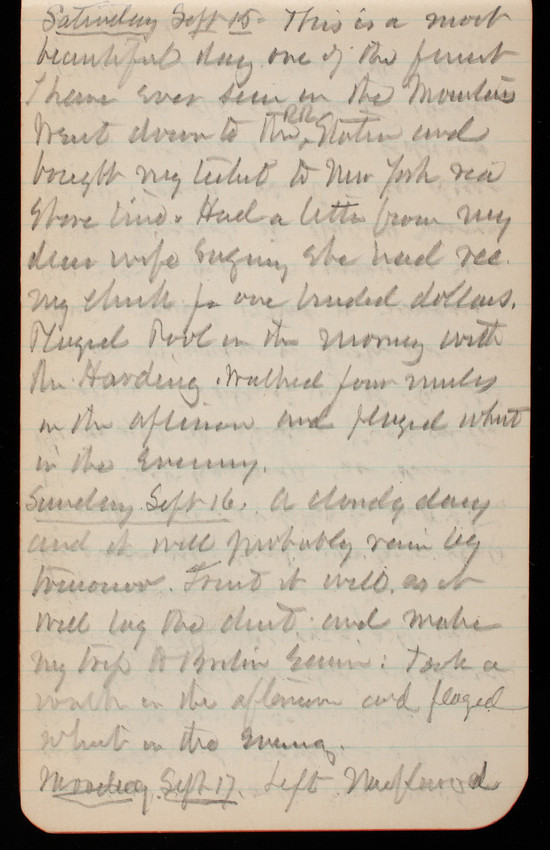 Saturday Sept 15- This is a most
beautiful day one of the finest
I have ever seen in the Mountains
Went down to the RR Station and
bought my ticket to New York via
Shore Line. Had a letter from my
dear wife saying she had rec.
my check for one hundred dollars.
Played Pool in the morning with
the Harding. Walked four miles
in the afternoon and played whist
in the Evening.
Sunday Sept 16. A cloudy day
and it will probably rain by
tomorrow. Trust it will, as it
will lay the dust and make
my trip to Boston Easier: Took a
walk in the afternoon and played
whist in the Evening.
Monday Sept 17. Left